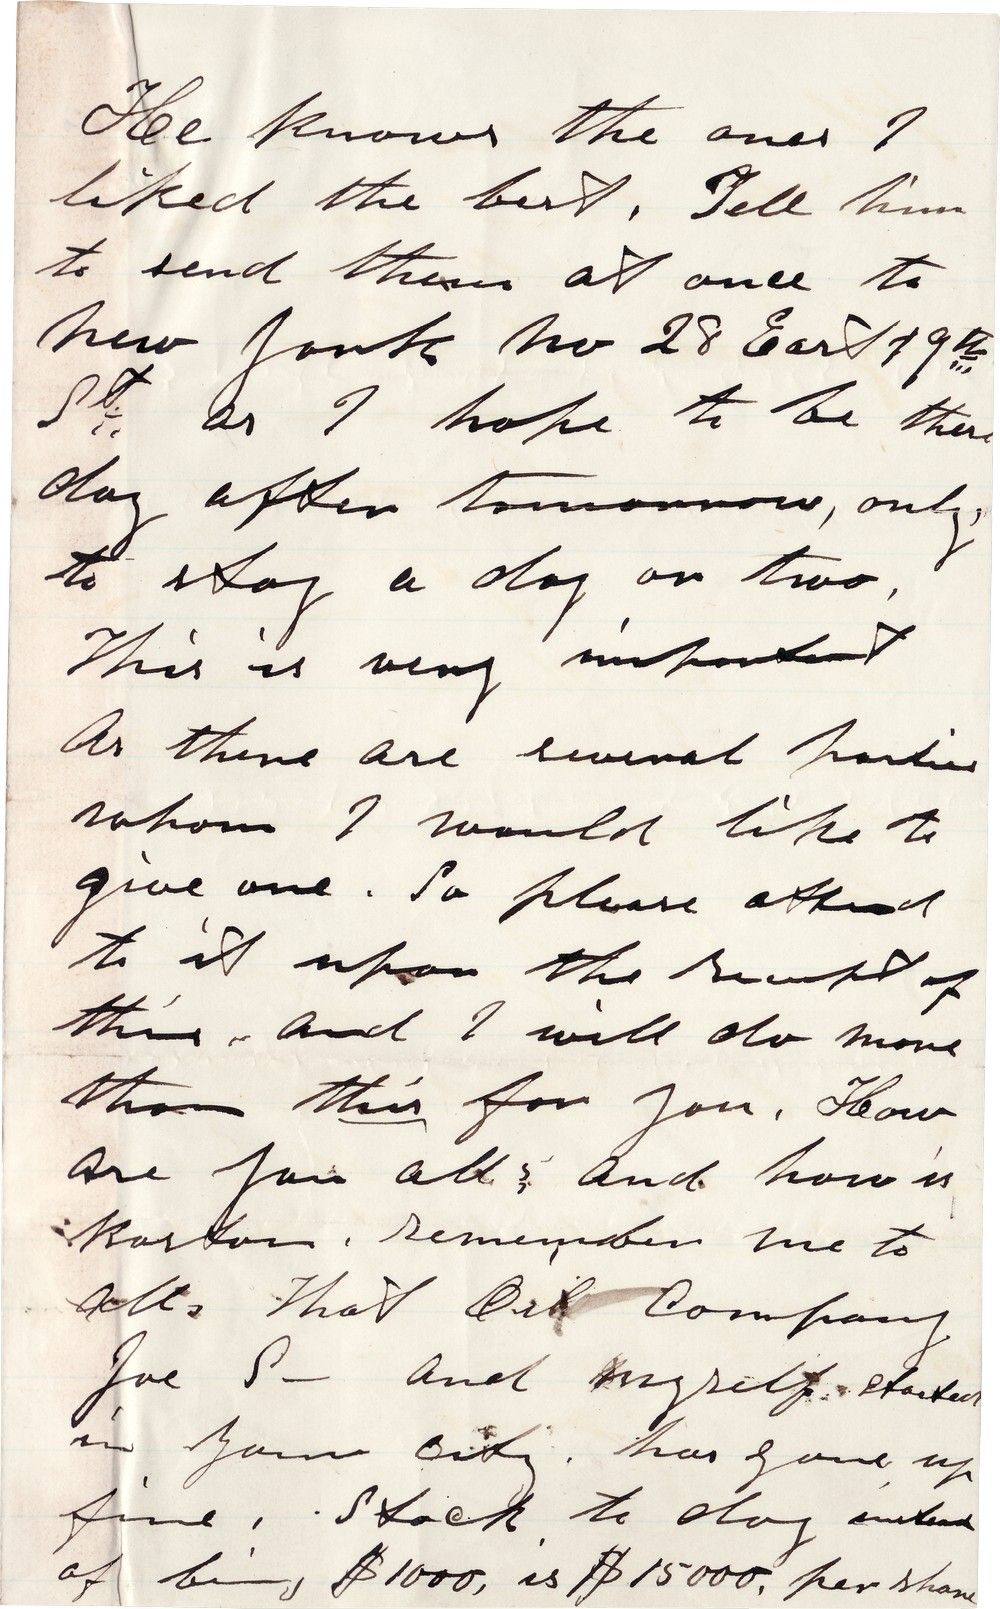 He knows the ones I
liked the best. Tell him
to send them at once to
New York No 28 East 19th
St. as I hope to be there
day after tomorrow, only,
to stay a day or two,
This is very important
As there are several parties
whom I would like to
give one. So please attend
to it upon the receipt of
this. and I will do more
than this for you. How
are you all; and how is
. remember me to
all, That Oil Company
Joe S— and myself. started
in your city. has gone up
fine, Stock to day instead
of being $1000, is $15000. per share